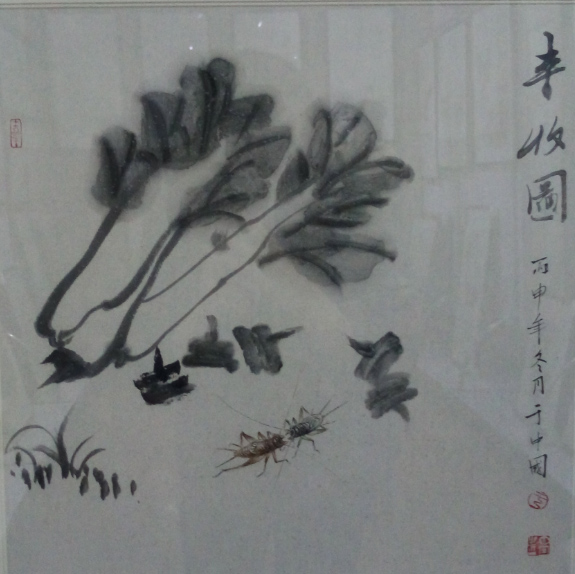 丰收圖
丙申年冬月于中国